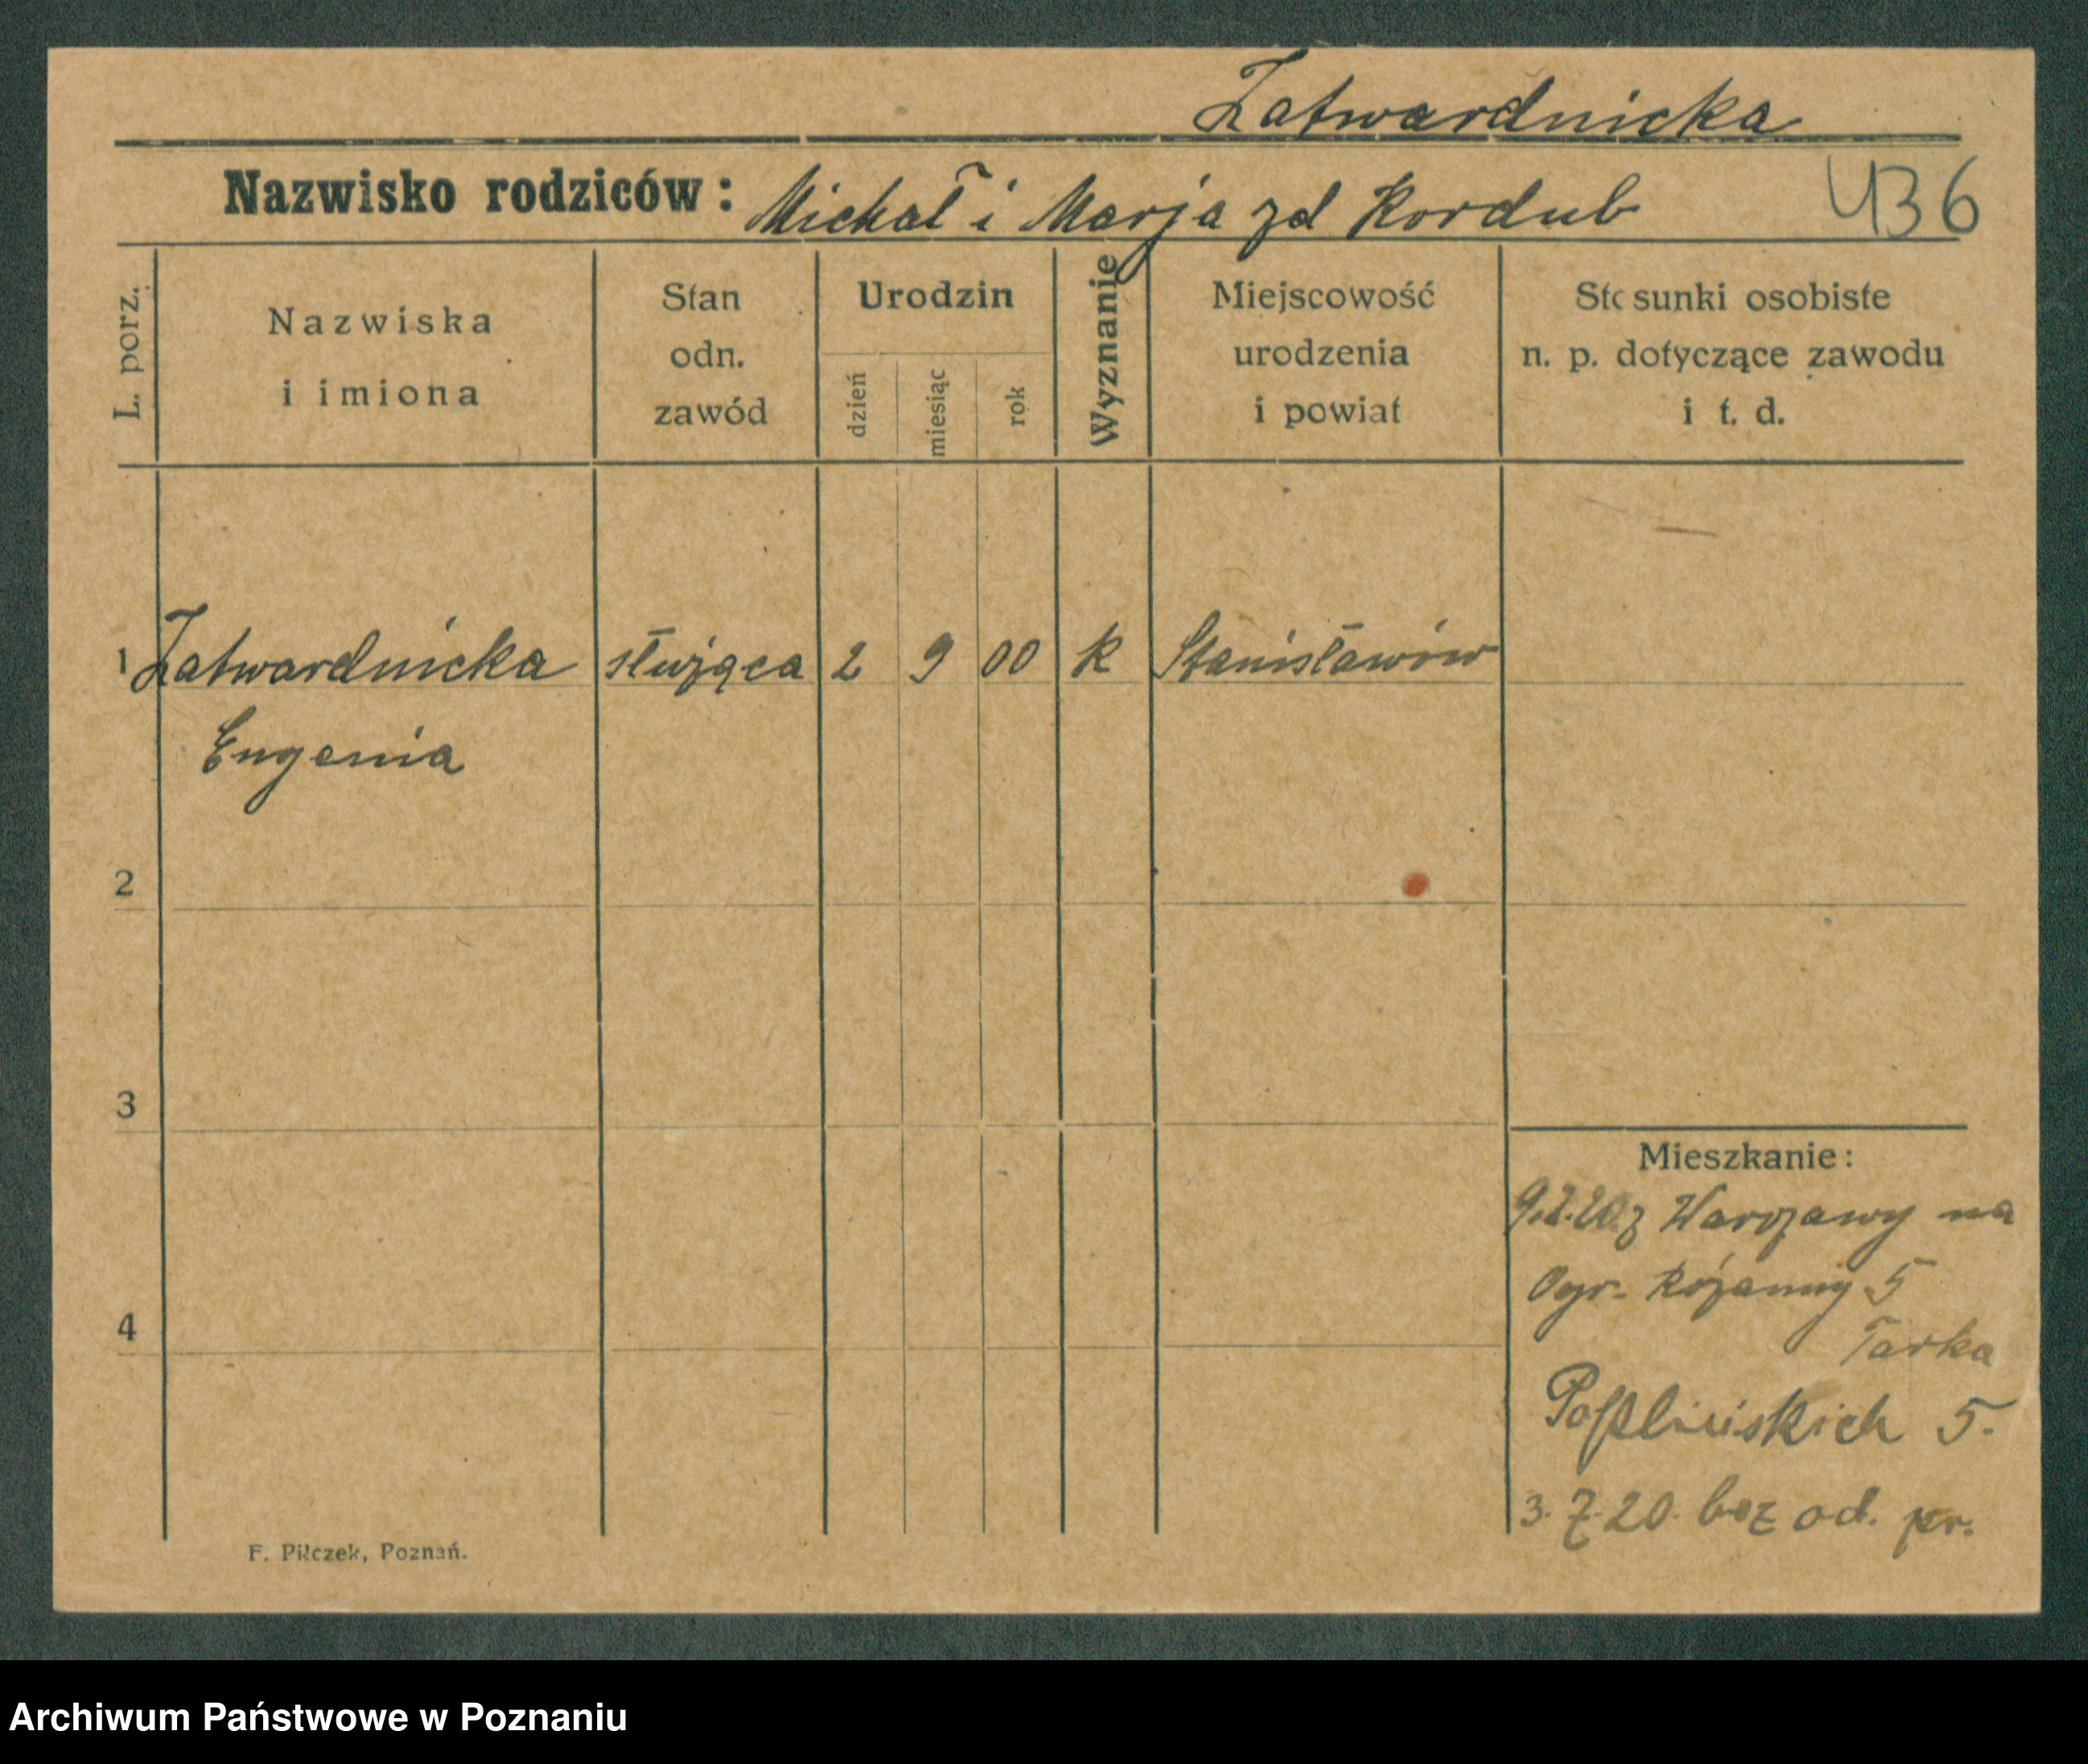 Zatwardnicka
Nazwisko rodziców: Michał i Marja zd Kordub
436
L. porz.
Nazwiska i imiona
Stan odn. zawód
Urodzin
dzień
miesiąc
rok
Wyznanie
Miejscowość urodzenia i powiat
Stosunki osobiste n. p. dotyczące zawodu i t. d.
1 Zatwardnicka służąca 2 9 00 k Stanisławów
Eugenia
2
3
4
Mieszkanie:
z Warszawy na
Ogr. Różanny 5
Tarka
5.
3.7.20. bez od. pr.
F. Piłczek, Poznań.
Archiwum Państwowe w Poznaniu